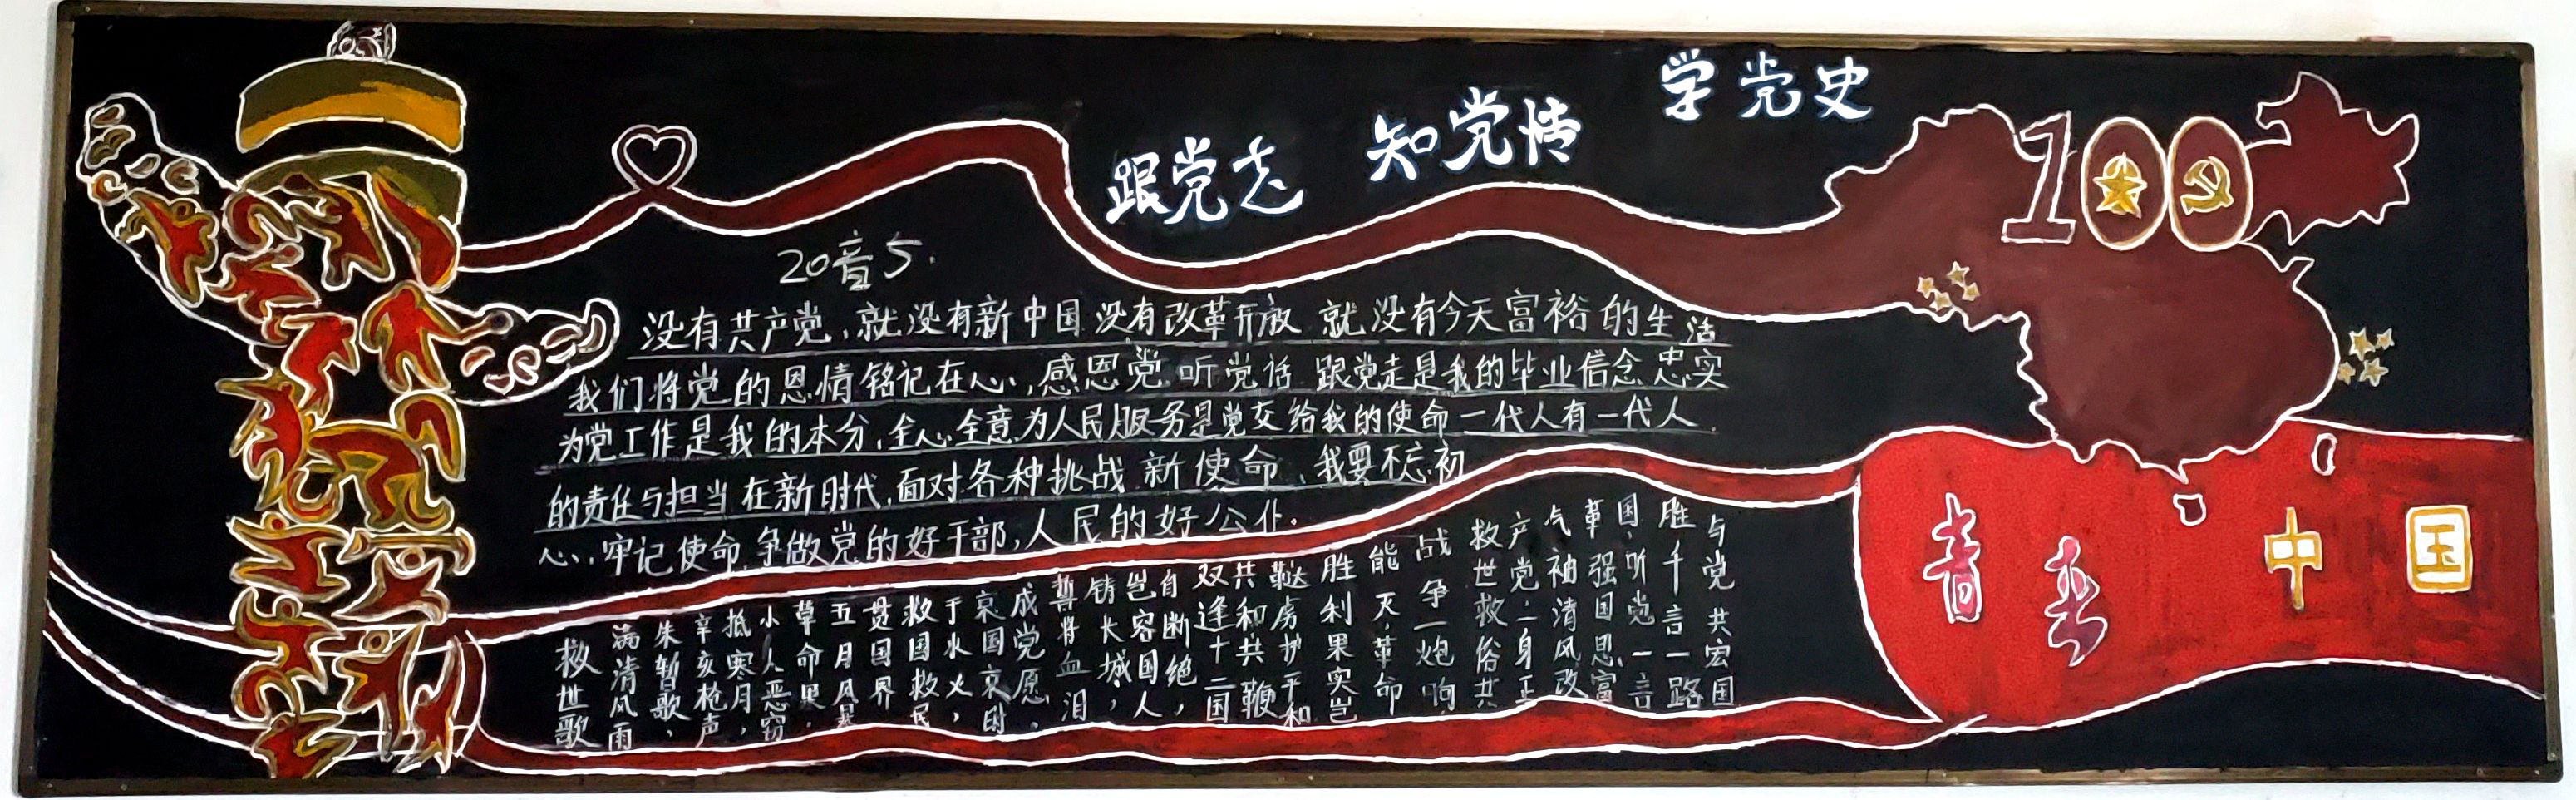 学党史
知党情
跟党走
100
20音5.
没有共产党,就没有新中国 没有改革开放 就没有今天富裕的生活
我们将党的恩情铭记在心,感恩党 听党话 跟党走是我的毕业信念 忠实
为党工作是我的本分,全心全意为人民服务是党交给我的使命 一代人有一代人
的责任与担当 在新时代,面对各种挑战 新使命,我要不忘初
心,牢记使命,争做党的好干部,人民的好公仆.
救世歌
满清风雨
朱暂歌,
辛亥枪声
抵寒月,
小人恶窃
草命果.
五月风暴
贯国界
救国救民
于水火,
哀国哀时
成党愿,
誓将血泪
铸长城,
岂容国人
自断绝,
双逢十二国
共和共鞭
鞑虏护平和
胜利果实岂
能灭,革命
战争一炮响
救世救俗共
产党二身正
气袖清风改
革强国思富
国,听党一言
胜千言一路
与党共宏国
青春
中国